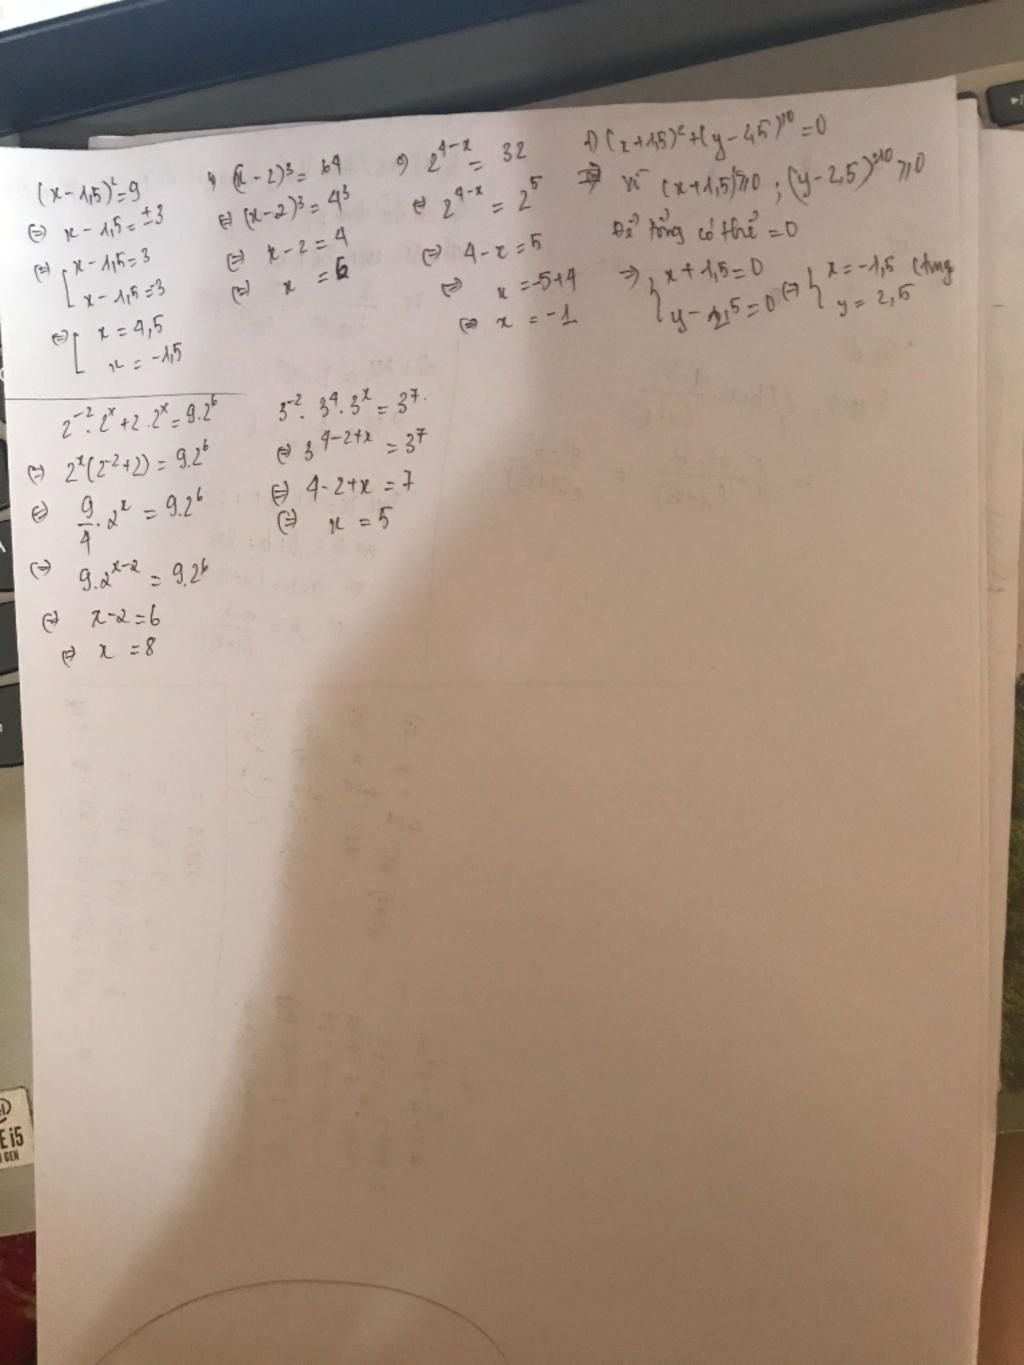 (x-1,5)²=9
(=) x-1,5=±3
(=) [ x-1,5=3
x-1,5=3
(=) [ x=4,5
x=-1,5
(x-2)³=64
(=) (x-2)³=4³
(=) x-2=4
(=) x=6
2^{4-x}=32
(=) 2^{4-x}=2⁵
(=) 4-x=5
(=) x=-5+4
(=) x=-1
d) (x+1,5)²+(y-2,5)¹⁰=0
Vì (x+1,5)²≥0; (y-2,5)¹⁰≥0
Để tổng có thể=0
=> { x+1,5=0 (=) { x=-1,5
y-2,5=0 y=2,5
2⁻².2ˣ+2.2ˣ=9.2⁶
(=) 2ˣ(2⁻²+2)=9.2⁶
(=) 9/4.2ˣ=9.2⁶
(=) 9.2^{x-2}=9.2⁶
(=) x-2=6
(=) x=8
3⁻².3⁴.3ˣ=3⁷.
(=) 3^{4-2+x}=3⁷
(=) 4-2+x=7
(=) x=5
E i5
GEN